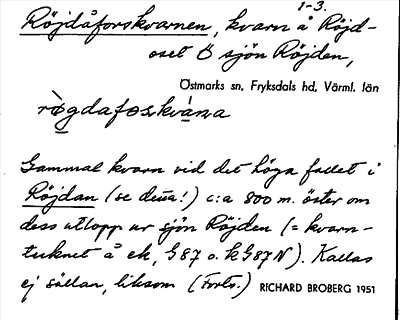 1-3.
Röjdåforskvarnen, kvarn å Röjd-
oset Ö sjön Röjden,
Östmarks sn, Fryksdals hd, Värml. län
Gammal kvarn vid det höga fallet i
Röjdan (se dessa!) c:a 800 m. öster om
dess utlopp ur sjön Röjden (= kvarn-
tecknet å ek, G87 o. kG87N). Kallas
ej sällan, liksom (Forts.) RICHARD BROBERG 1951